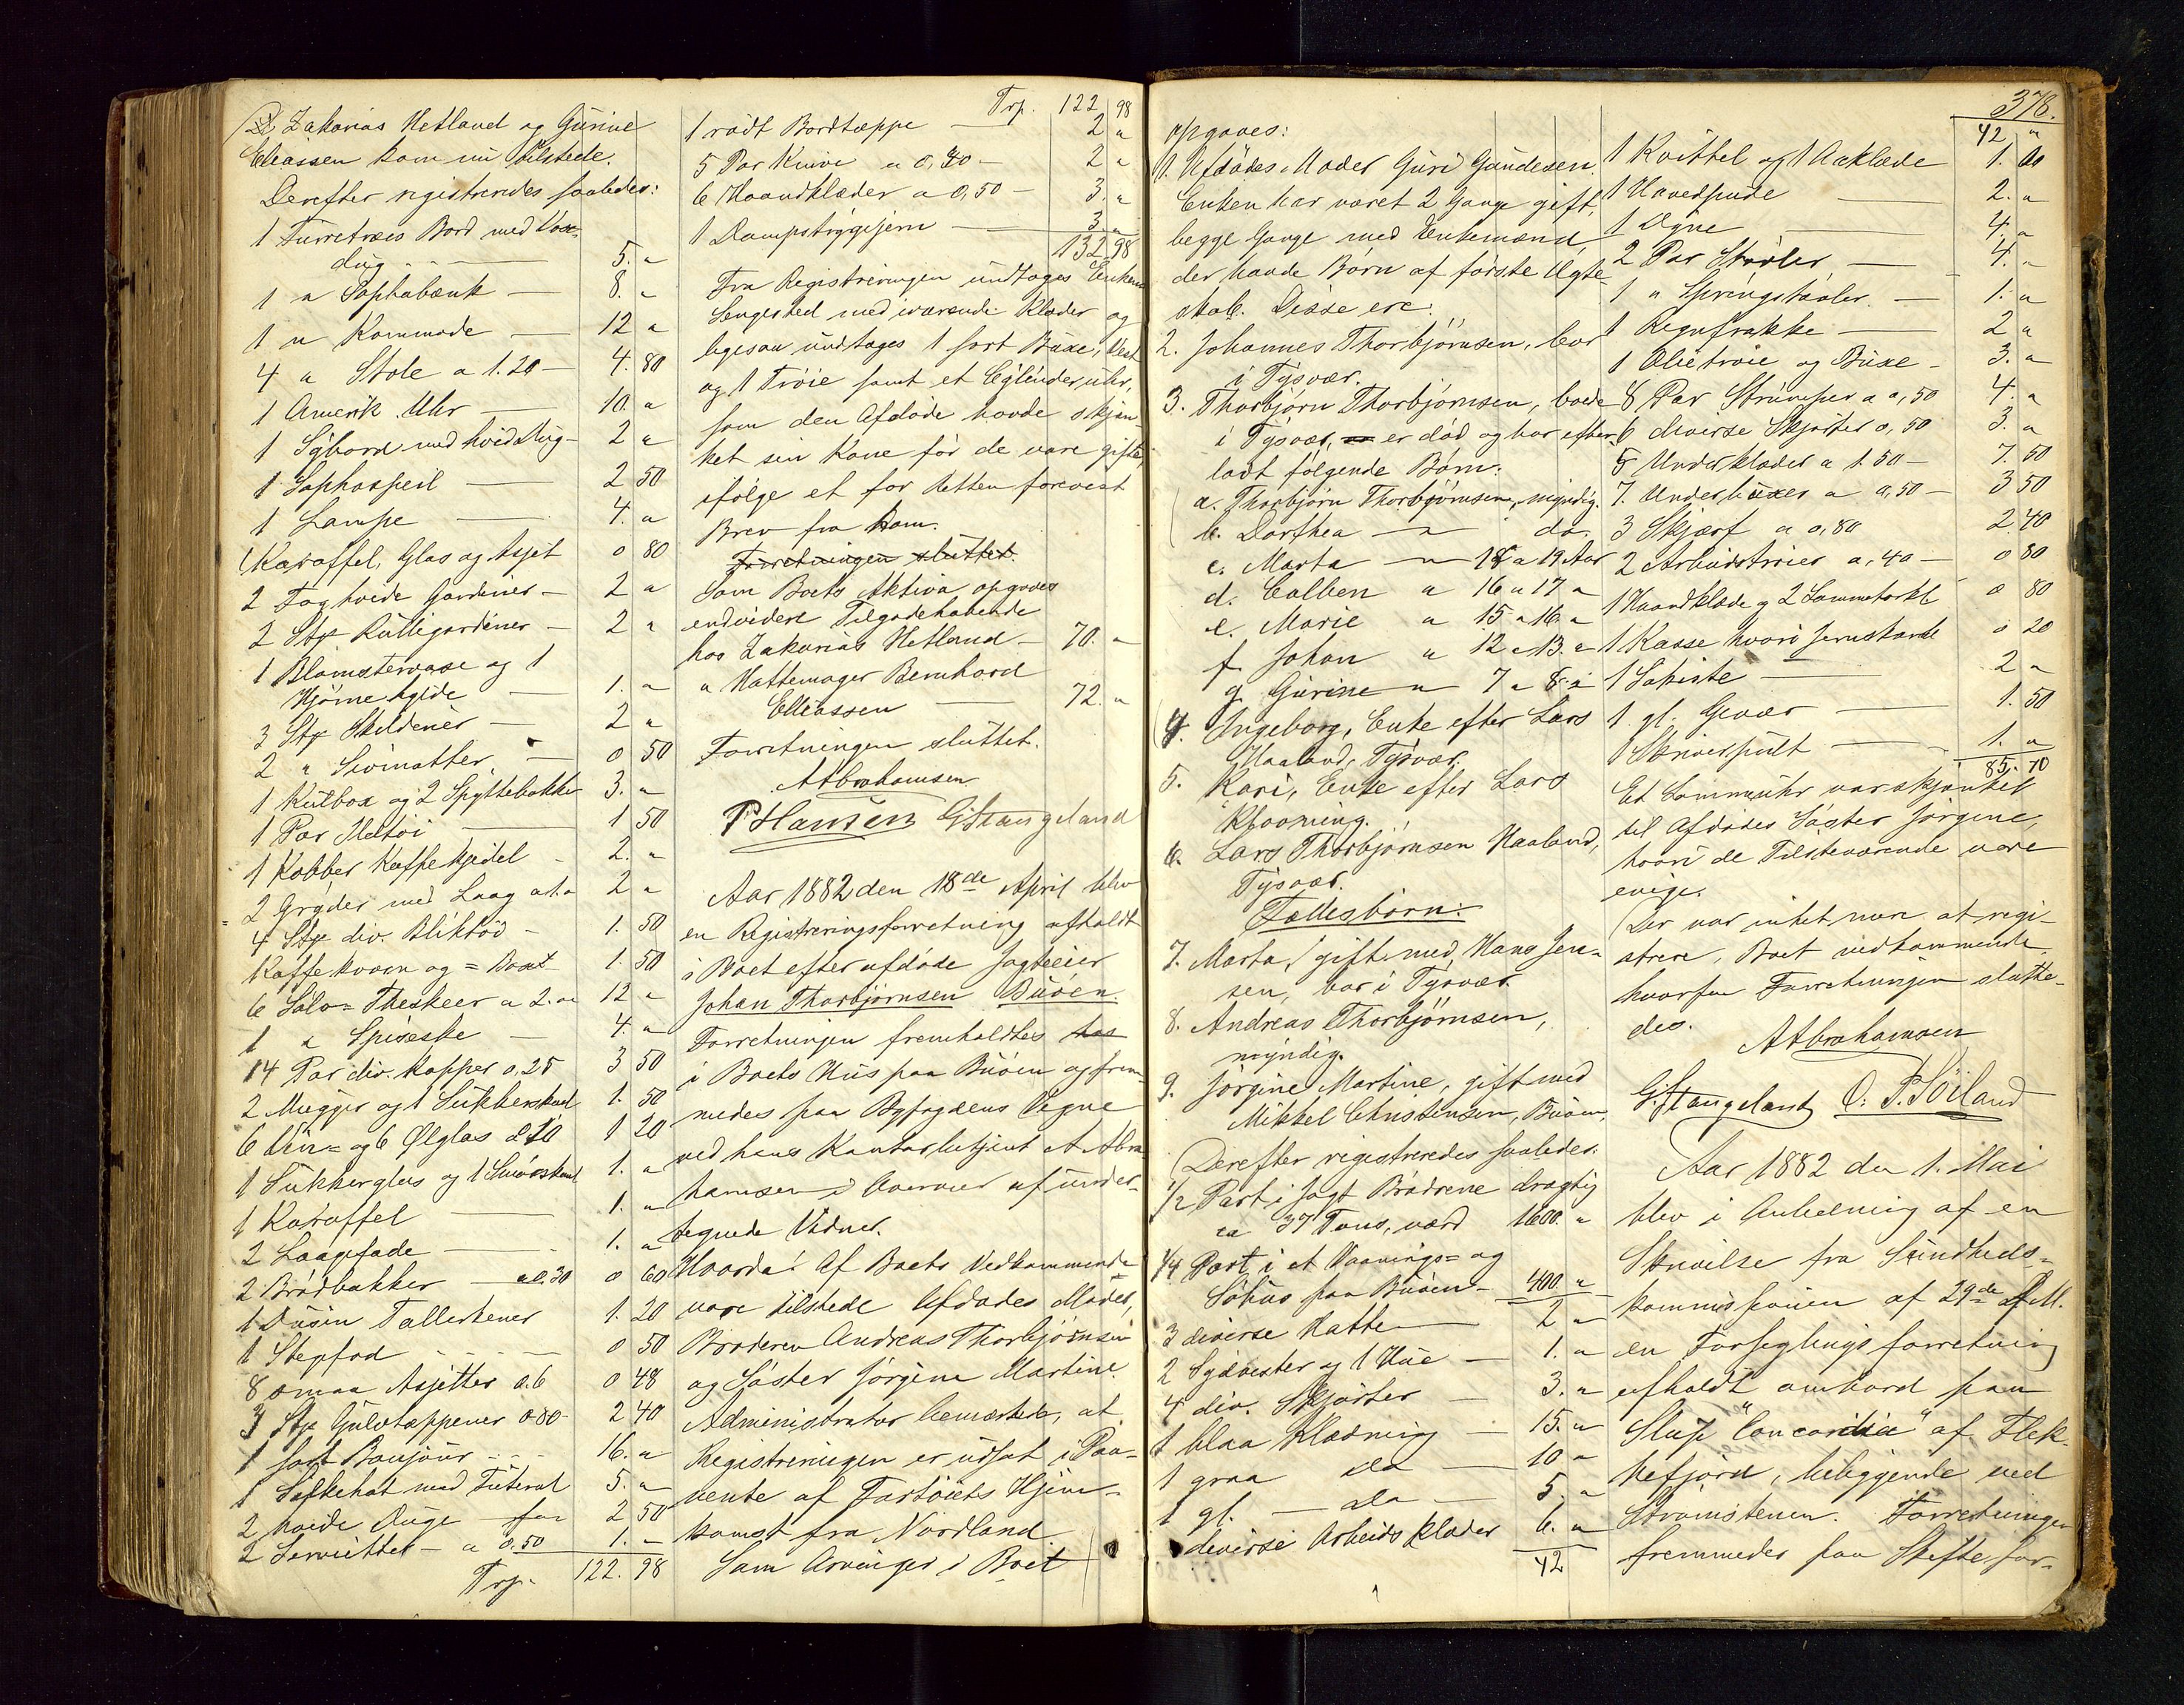 Zakarias Hetland og Gurine
Eliassen kom nu tilstede.
Derefter registreredes saaledes:
1 Furretræes Bord med Vox-
dug 5. "
1 " Sophabænk — 8. "
1 " Kommode — 12 "
4 " Stole a 1.20 — 4. 80
1 Amerik. Uhr — 10. "
1 Sybord med hvid Dug — 2 "
1 Sophaspeil — 2 50
1 Lampe — 4. "
1 Karaffel, Glas og Asjet 0 80
2 Fag hvide Gardiner — 2 "
2 Stkr Rullegardiner — 2 "
1 Blomstervase og 1
Hjørnehylde — 1. "
3 Stkr Skilderier — 2 "
2 " Sivmatter — 0 50
1 Kulbox og 2 Spyttebakker 3. "
1 Par Ildtøi — 1 50
1 Kobber Kaffekjedel — 2. "
2 Gryder med Laag a 1. " 2 "
4 Stkr div. Bliktøi — 1. 50
Kaffekværn og = Boxt 1. 50
6 Sølv= Theskeer a 2. " 12 "
1 " Spiseske — 4. "
14 Par div. Kopper 0,25 3 50
2 Mugger og 1 Sukkerskaal 1. 50
6 Vin= og 6 Ølglas a 10 1 20
1 Sukkerglas og 1 Smørskaal 1. "
1 Karaffel — 1. "
2 Laagefade — 1. "
2 Brødbakker — a 0.30 0 60
1 Dusin Tallerkener 1. 20
1 Stegfad 0 50
8 smaa Asjetter a 6 0 48
3 Stkr Gulvtæppener 0 80 2 40
1 sort Bonjour 16. "
1 Silkehat med Futeral 5. "
2 hvide Duge 2 50
2 Servietter — a 0.50 1. —
Trp. 122. 98
Trp. 122 98
1 rødt Bordtæppe — 2 "
5 Par Knive a 0,40 — 2 "
6 Haandklæder a 0,50 — 3. "
1 Dampstrygejern — 3 "
132 98
Fra Registreringen undtoges Enkens
Sengested med iværende Klæder og
ligesaa undtoges 1 sort Buxe, Vest
og 1 Trøie samt et Cylinderuhr,
som den Afdøde havde skjæn-
ket sin Kone før de vare gifte,
ifølge et for Retten forevist
Brev fra ham.
Forretningen sluttet.
Som Boets Aktiva opgaves
endvidere Tilgodehavende
hos Zakarias Hetland — 70. "
" Hattemager Bernhard
Elleassen — 72. "
Forretningen sluttet.
A Abrahamsen
P Hansen G Stangeland
Aar 1882 den 18de April blev
en Registreringsforretning afholdt
i Boet efter afdøde Jagteeier
Johan Thorbjørnsen Buøen.
Forretningen fremholdtes hos
i Boets Hus paa Buøen og frem-
medes paa Byfogdens Vegne
ved hans Kontorbetjent A Abra
hamsen i Overvær af under-
tegnede Vidner.
Hvorda: Af Boets Vedkommende
vare tilstede Afdødes Moder,
Broderen Andreas Thorbjørnsen
og Søster Jørgine Martine.
Administrator bemærkede, at
Registreringen er udsat i Paa-
vente af Fartøiets Hjem-
komst fra Nordland.
Som Arvinger i Boet
378.
opgaves:
1. Afdødes Moder Guri Gundesen.
Enken har været 2 Gange gift,
begge Gange med Enkemænd
der havde Børn af første Ægte-
skab. Disse ere:
2. Johannes Thorbjørnsen, bor
i Tysvær.
3. Thorbjørn Thorbjørnsen, boede
i Tysvær, er død og har efter-
ladt følgende Børn:
a. Thorbjørn Thorbjørnsen, myndig.
b. Dorthea — " do.
c. Marta — " 18 a 19 Aar
d. Colben " 16 a 17 "
e. Marie " 15 a 16. "
f. Johan " 12 a 13. "
g. Gurine — " 7 a 8. "
4. Ingeborg, Enke efter Lars
Haaland, Tysvær.
5. Kari, Enke efter Lars
Kłovning.
6. Lars Thorbjørnsen Haaland,
Tysvær.
Fællesbørn:
7. Marta, gift med Hans Jen-
sen, bor i Tysvær.
8. Andreas Thorbjørnsen,
myndig.
9. Jørgine Martine, gift med
Mikkel Christensen, Buøen,
Derefter registreredes saaledes.
1/2 Part i Jagt Brødrene drægtig
ca 37 Tons, værd 1600. "
1/4 Part i et Vaanings= og
Søhus paa Buøen — 400 "
3 diverse Hatte — 2 "
2 Sydvester og 1 Hue — 1. "
4 div. Skjorter — 3. "
1 blaa Klædning — 15. "
1 graa do — 10 "
1 gl. — do — 5. "
diverse Arbeidsklæder 6. "
42
42 "
1 Kvittel og 1 Aaklæde 1.
1 Hovedpude — 2. "
1 Dyne — 4. "
2 Par Støvler — 4. "
1 " Springstøvler — 1. "
1 Regnfrakke — 2 "
1 Olietrøie og Buxe — 3. "
8 Par Strømper a 0,50 4. "
6 diverse Skjorter 0,50 3. "
5 Underklæder a 1.50 — 7. 50
7. Underbuxer a 0,50 — 3 50
3 Skjærf a 0,80 2. 40
2 Arbeidstrøier a, 40 — 0 80
1 Haandklæde og 2 Lommetørkl 0 80
1 Kasse hvori Jernstande 0 20
1 Søkiste — 2 "
1 gl. Gevær — 1. 50
1 Skriverpult — 1. "
85. 70
Et Lommeuhr var skjænket
til Afdødes Søster Jørgine,
hvori de Tilstedeværende vare
enige.
Der var intet mere at regi-
strere, Boet vedkommende,
hvorfor Forretningen slutte-
des.
A Abrahamsen
G. Stangeland O. P. Söiland
Aar 1882 den 1. Mai
blev i Anledning af en
Skrivelse fra Sundheds-
kommissionen af 29de f. M.
en Forseglingsforretning
afholdt ombord paa
Slup "Concordia" af Flek-
kefjord, beliggende ved
Strømstenen. Forretningen
fremmedes paa Skiftefor-